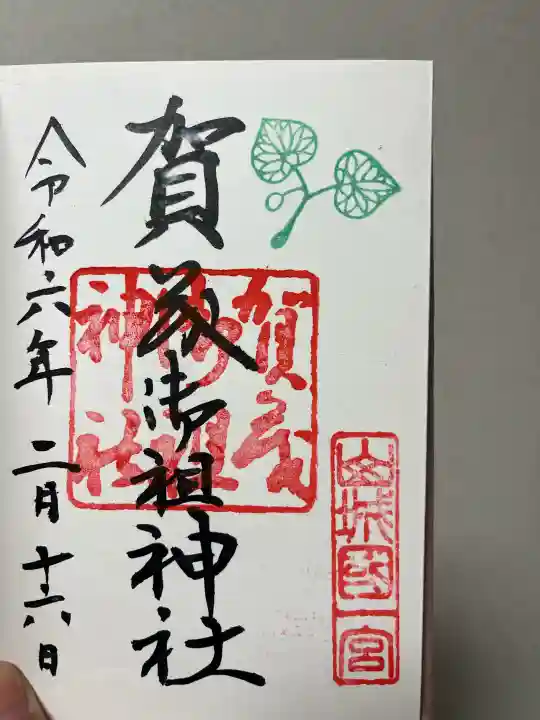 山城國一宮
賀茂御祖神社
賀茂御祖神社
令和六年二月十六日